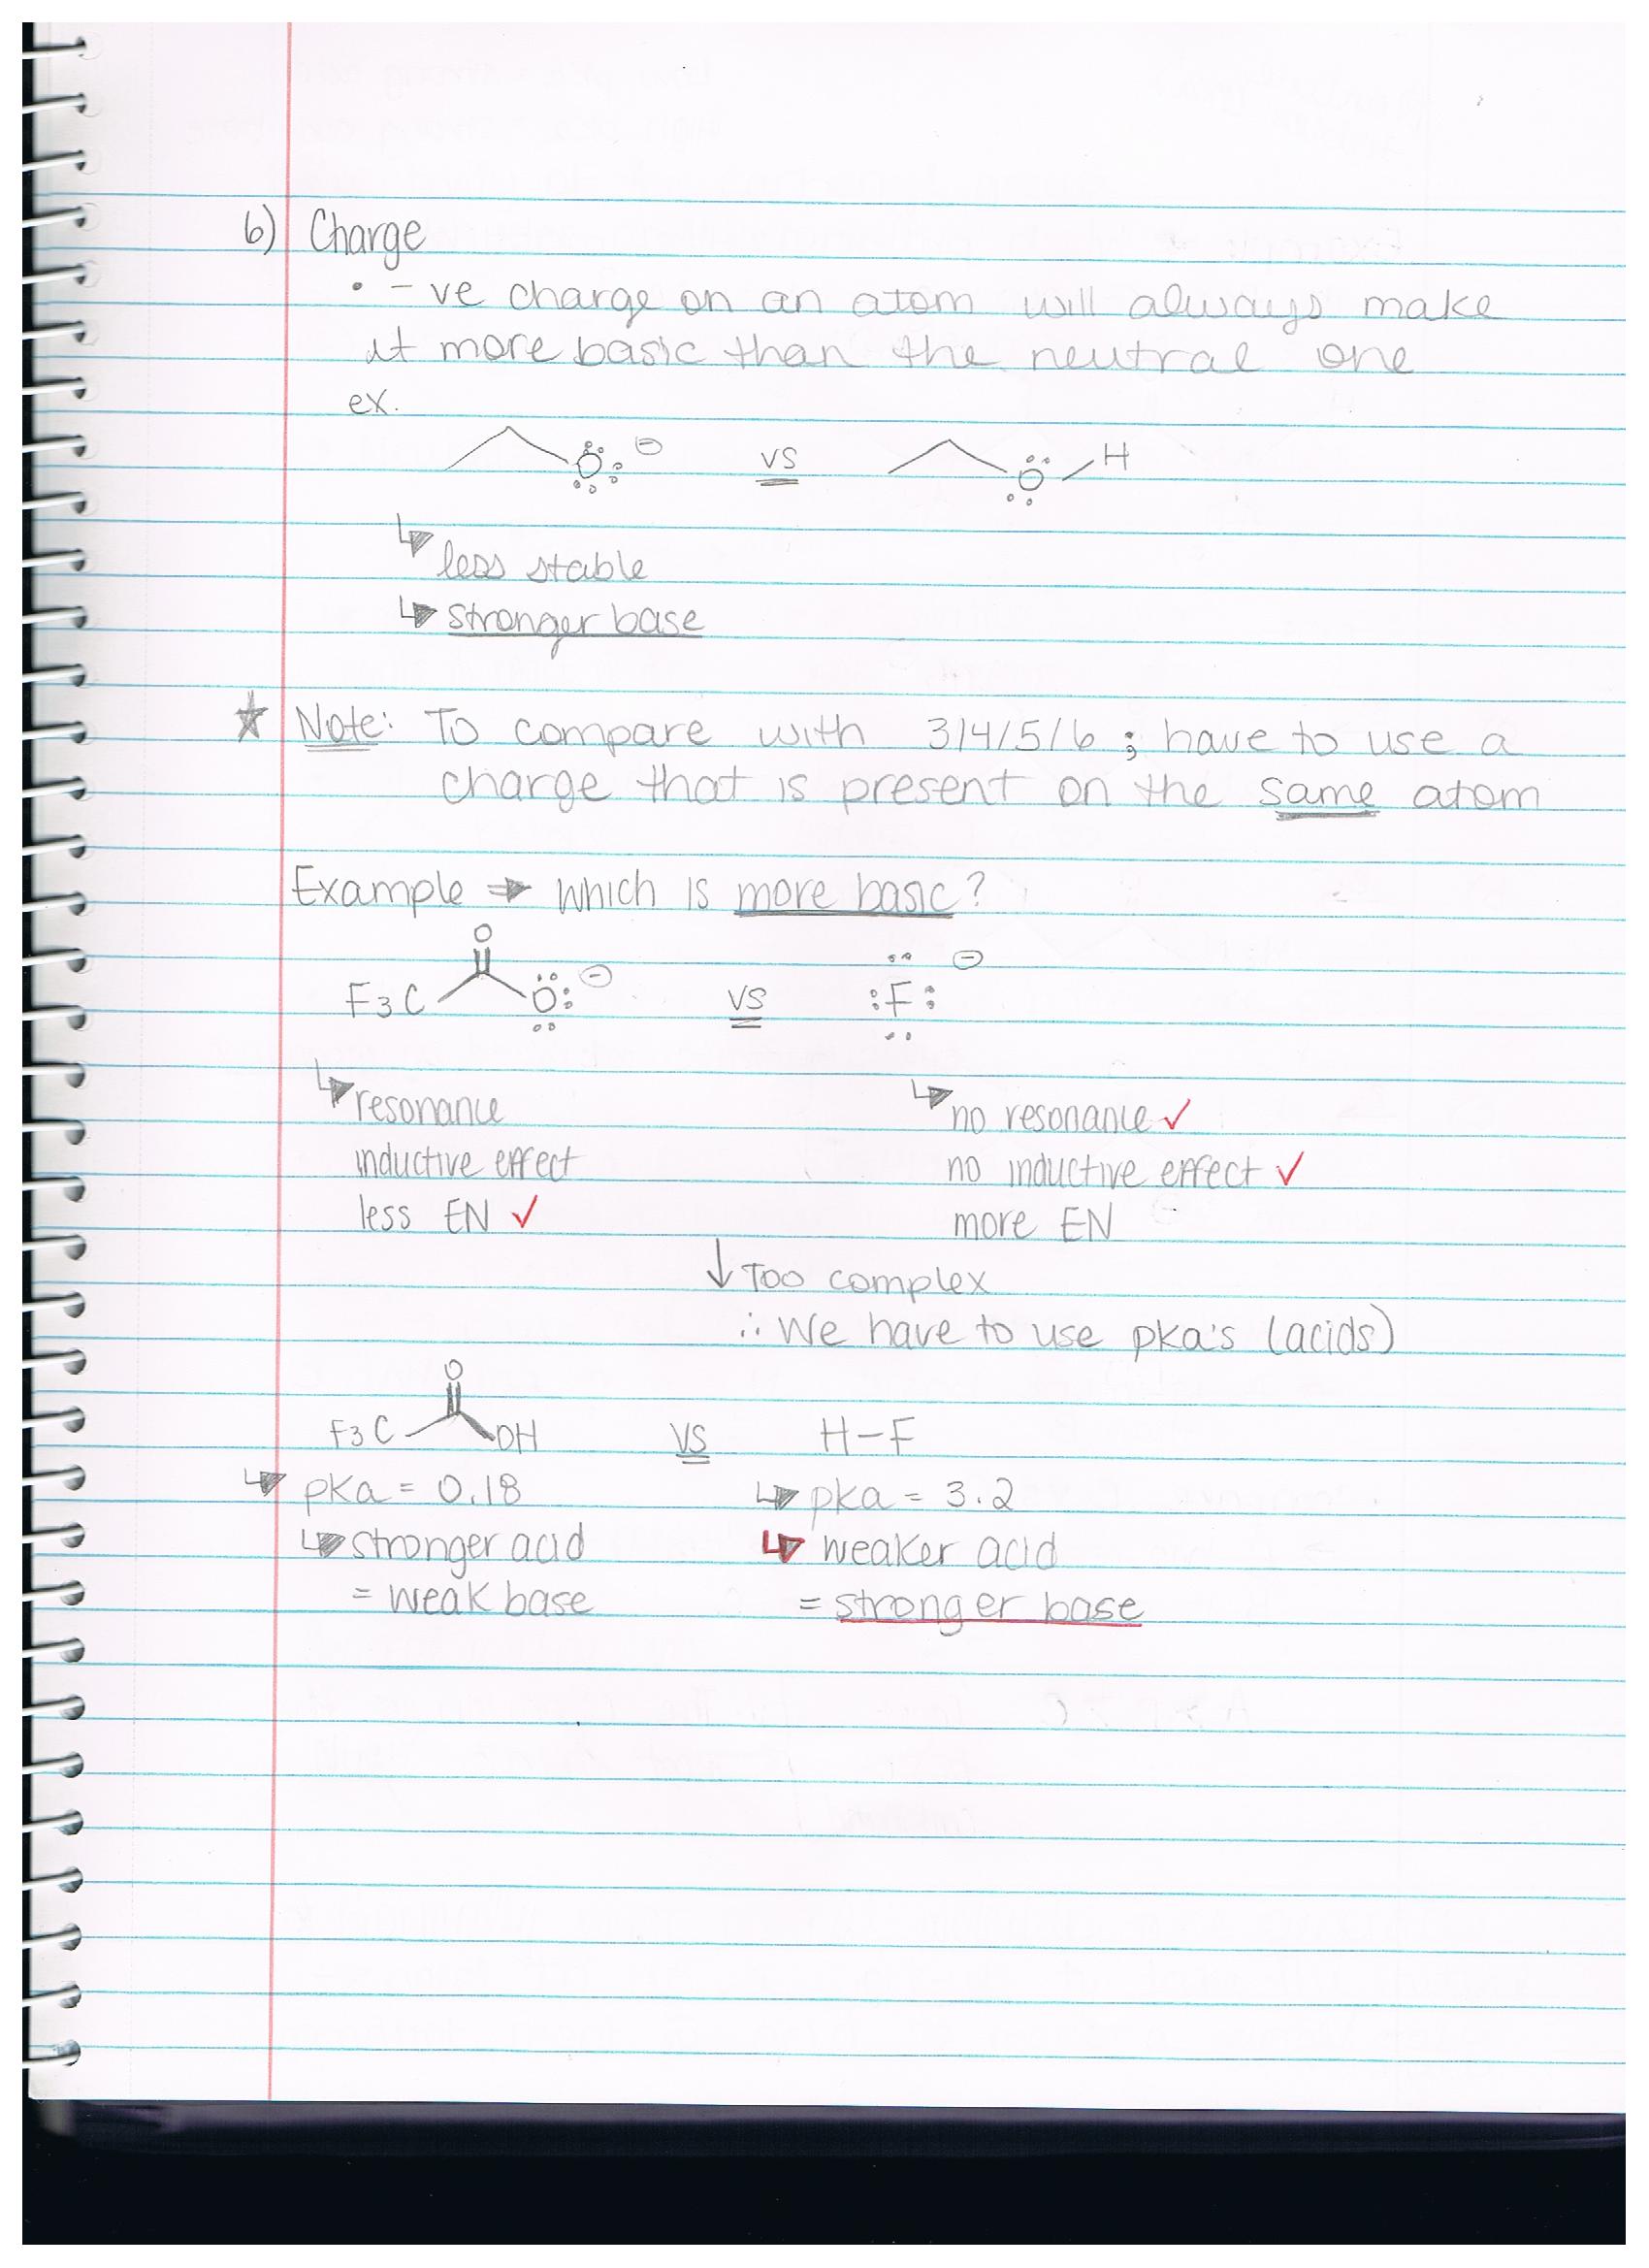 6) Charge
• -ve charge on an atom will always make
it more basic than the neutral one
ex.
O ⊖ vs O H
less stable
stronger base
★ Note: To compare with 3/4/5/6 ; have to use a
charge that is present on the same atom
Example → which is more basic?
O
F3C O ⊖ vs F ⊖
resonance no resonance ✓
inductive effect no inductive effect ✓
less EN ✓ more EN
↓ Too complex
∴ We have to use pka's (acids)
O
F3C OH vs H-F
pka = 0.18 pka = 3.2
stronger acid weaker acid
= weak base = stronger base